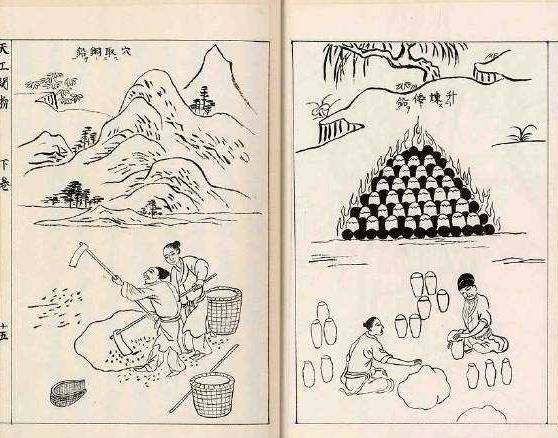 升煉倭鉛
穴取銅鉛
天工開物
下卷
十五